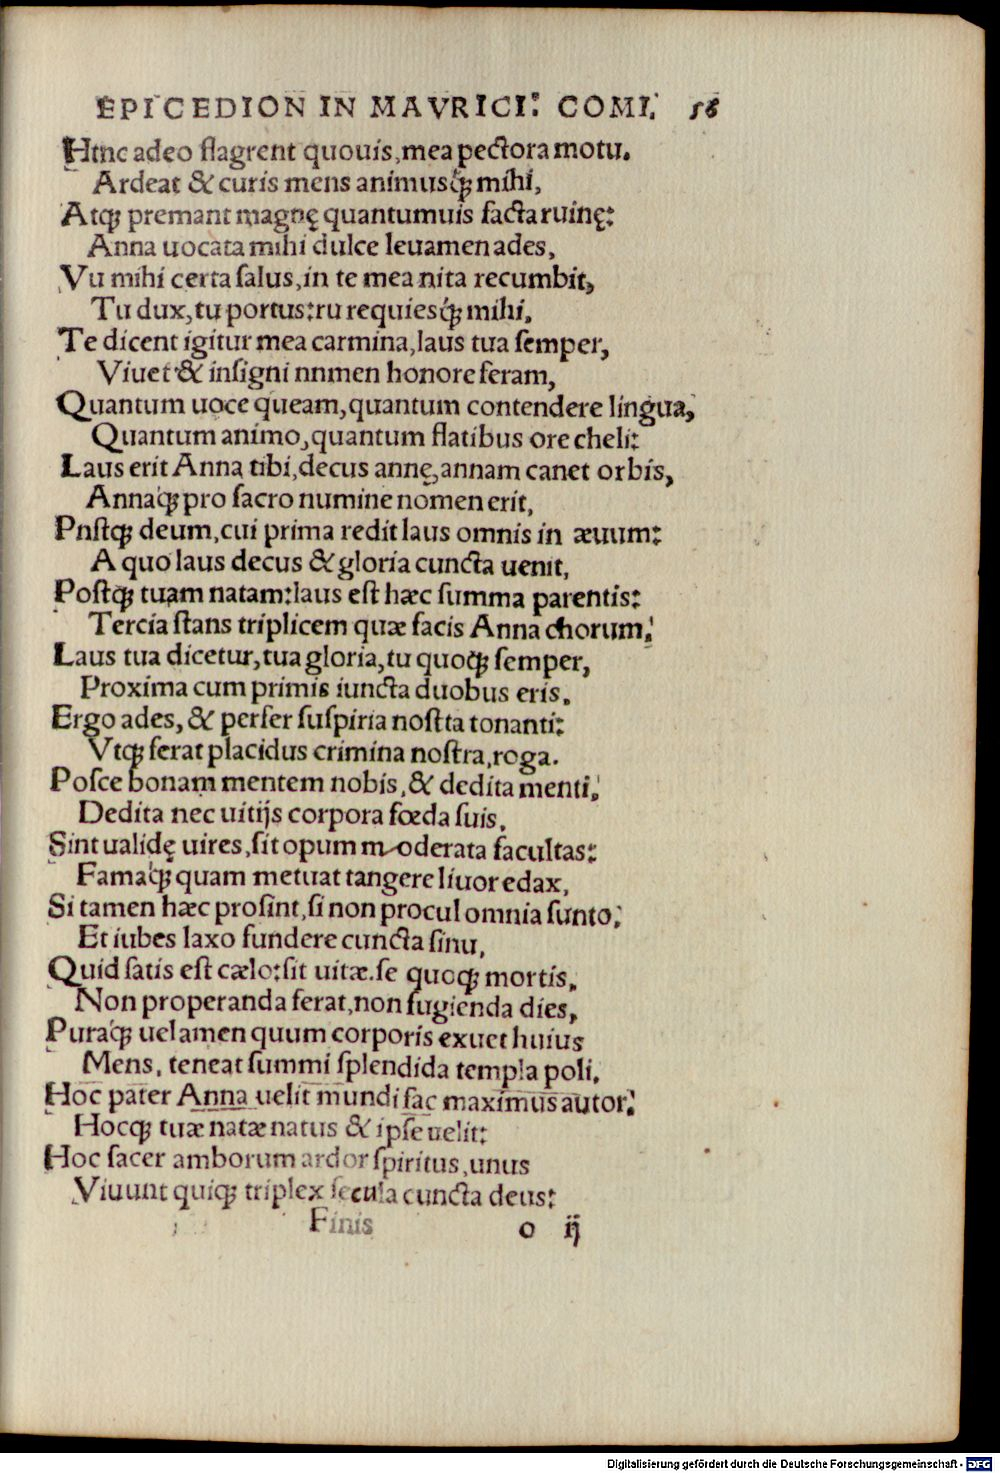 EPICEDION IN MAVRICI: COMI: 56
Hinc adeo flagrent quouis, mea pectora motu.
Ardeat & curis mens animusq; mihi,
Atq; premant magnę quantumuis facta ruinę:
Anna uocata mihi dulce leuamen ades,
Vu mihi certa salus, in te mea nita recumbit,
Tu dux, tu portus: ru requiesq; mihi.
Te dicent igitur mea carmina, laus tua semper,
Viuet & insigni nnmen honore feram,
Quantum uoce queam, quantum contendere lingua,
Quantum animo, quantum flatibus ore cheli:
Laus erit Anna tibi, decus annę, annam canet orbis,
Annaq; pro sacro numine nomen erit,
Pnstq; deum, cui prima redit laus omnis in æuum:
A quo laus decus & gloria cuncta uenit,
Postq; tuam natam: laus est hæc summa parentis:
Tercia stans triplicem quæ facis Anna chorum:
Laus tua dicetur, tua gloria, tu quoq; semper,
Proxima cum primis iuncta duobus eris.
Ergo ades, & perfer suspiria nostta tonanti:
Vtq; ferat placidus crimina nostra, roga.
Posce bonam mentem nobis, & dedita menti:
Dedita nec uitijs corpora fœda suis.
Sint ualidę uires, sit opum moderata facultas:
Famaq; quam metuat tangere liuor edax,
Si tamen hæc prosint, si non procul omnia sunto:
Et iubes laxo fundere cuncta sinu,
Quid satis est cælo: sit uitæ. se quoq; mortis,
Non properanda ferat, non fugienda dies,
Puraq; uelamen quum corporis exuet huius
Mens, teneat summi splendida templa poli.
Hoc pater Anna uelit mundi fac maximus autor:
Hocq; tuæ natæ natus & ipse uelit:
Hoc sacer amborum ardor spiritus, unus
Viuunt quiq; triplex secula cuncta deus:
Finis o ij
Digitalisierung gefördert durch die Deutsche Forschungsgemeinschaft - DFG